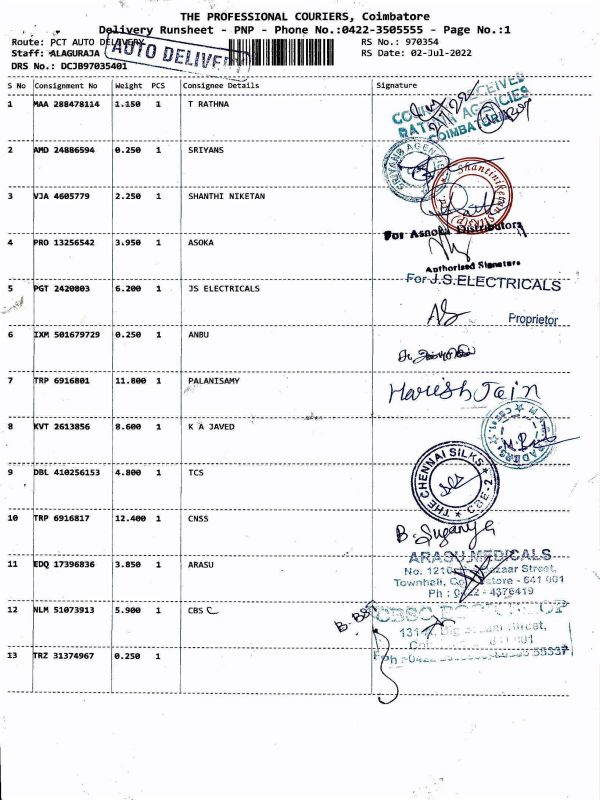 THE PROFESSIONAL COURIERS, Coimbatore
Delivery Runsheet - PNP - Phone No.:0422-3505555 - Page No.:1
Route: PCT AUTO DELIVERY
RS No.: 970354
Staff: ALAGURAJA
AUTO DELIVERY
RS Date: 02-Jul-2022
DRS No.: DCJB97035401
S No Consignment No Weight PCS Consignee Details Signature
1 MAA 288478114 1.150 1 T RATHNA
RECEIVED
AGENCIES
2 AMD 24886594 0.250 1 SRIYANS
SRIYANS AGENC
3 VJA 4605779 2.250 1 SHANTHI NIKETAN
Shantiniketan
For Asnoka Distributors
4 PRO 13256542 3.950 1 ASOKA
Authorised Signatore
For J.S.ELECTRICALS
5 PGT 2420803 6.200 1 JS ELECTRICALS
Proprietor
6 IXM 501679729 0.250 1 ANBU
7 TRP 6916801 11.800 1 PALANISAMY
Haresh Jain
8 KVT 2613856 8.600 1 K A JAVED
9 DBL 410256153 4.800 1 TCS
THE CHENNAI SILKS CBE-2
10 TRP 6916817 12.400 1 CNSS
B. Suganya
ARASU MEDICALS
11 EDQ 17396836 3.850 1 ARASU
No. 1210 Bazaar Street,
Townhall, Coimbatore - 641 001
Ph : 0422 - 4376419
12 NLM 51073913 5.900 1 CBS C
CBSC
Street,
13 TRZ 31374967 0.250 1